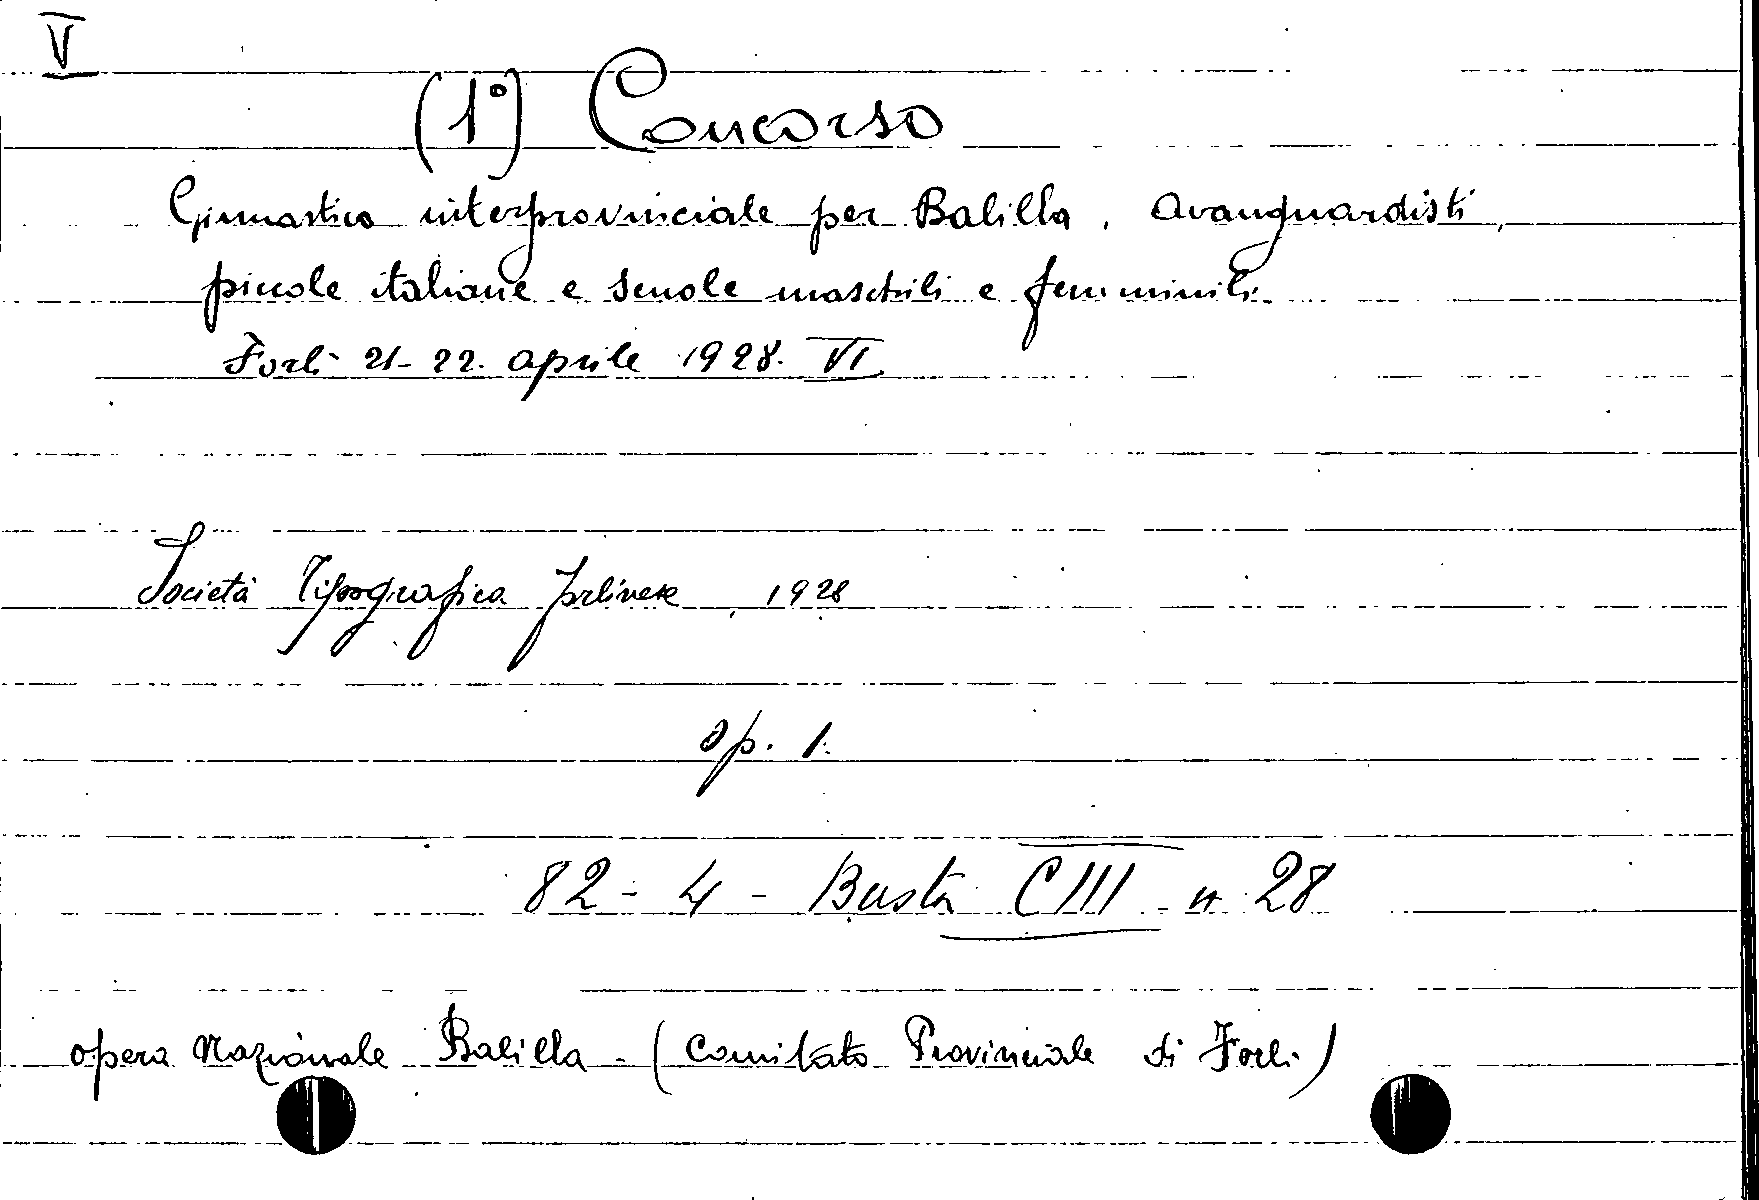 V
(1°) Concorso
Ginnastico interprovinciale per Balilla, avanguardisti,
piccole italiane e scuole maschili e femminili.
Forlì 21-22. aprile 1928. VI
Società Tipografica forlivese, 1928
op. 1.
82 - 4 - Busta CIII n 28
opera Nazionale Balilla - (Comitato Provinciale di Forlì)